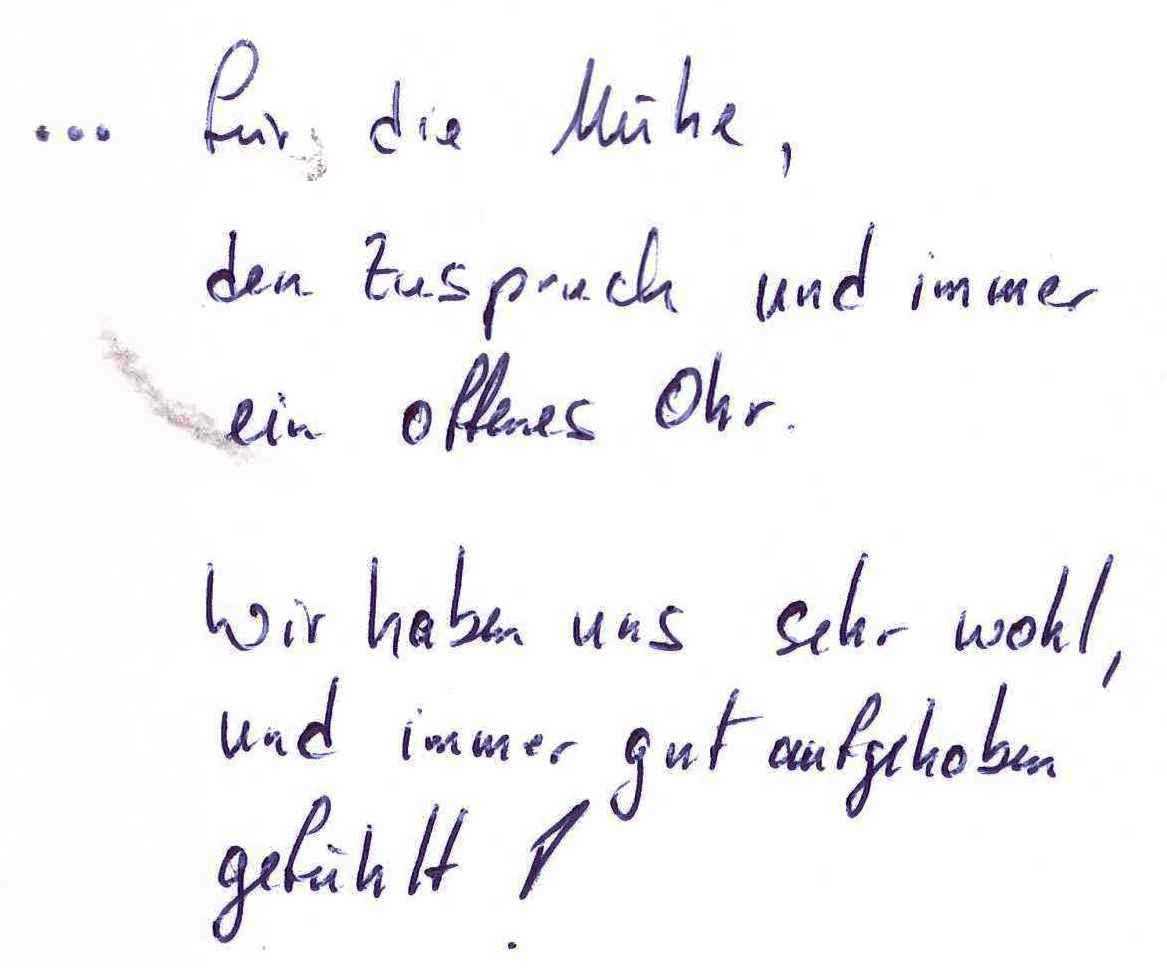 ... für die Mühe,
den Zuspruch und immer
ein offenes Ohr.
Wir haben uns sehr wohl,
und immer gut aufgehoben
gefühlt!